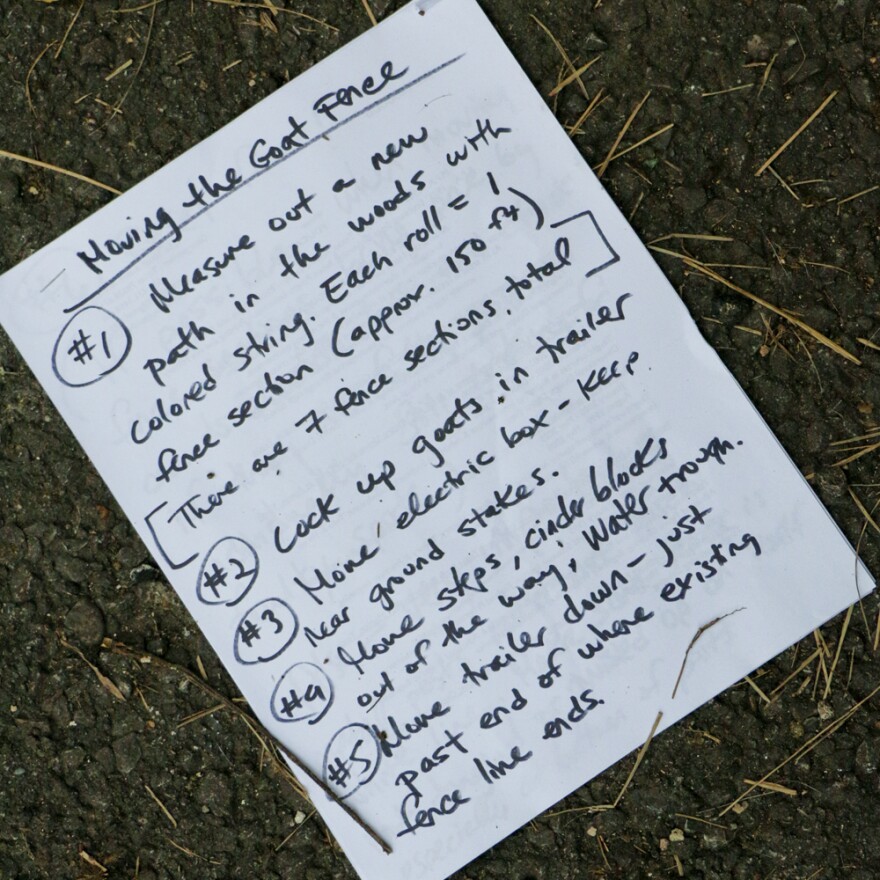 Moving the Goat Fence
#1 Measure out a new
path in the woods with
colored string. Each roll = 1
fence section (approx. 150 ft)
[There are 7 fence sections, total]
#2 Lock up goats in trailer
#3 Move electric box - keep
near ground stakes.
#4 Move steps, cinder blocks
out of the way; Water trough.
#5 Move trailer down - just
past end of where existing
fence line ends.